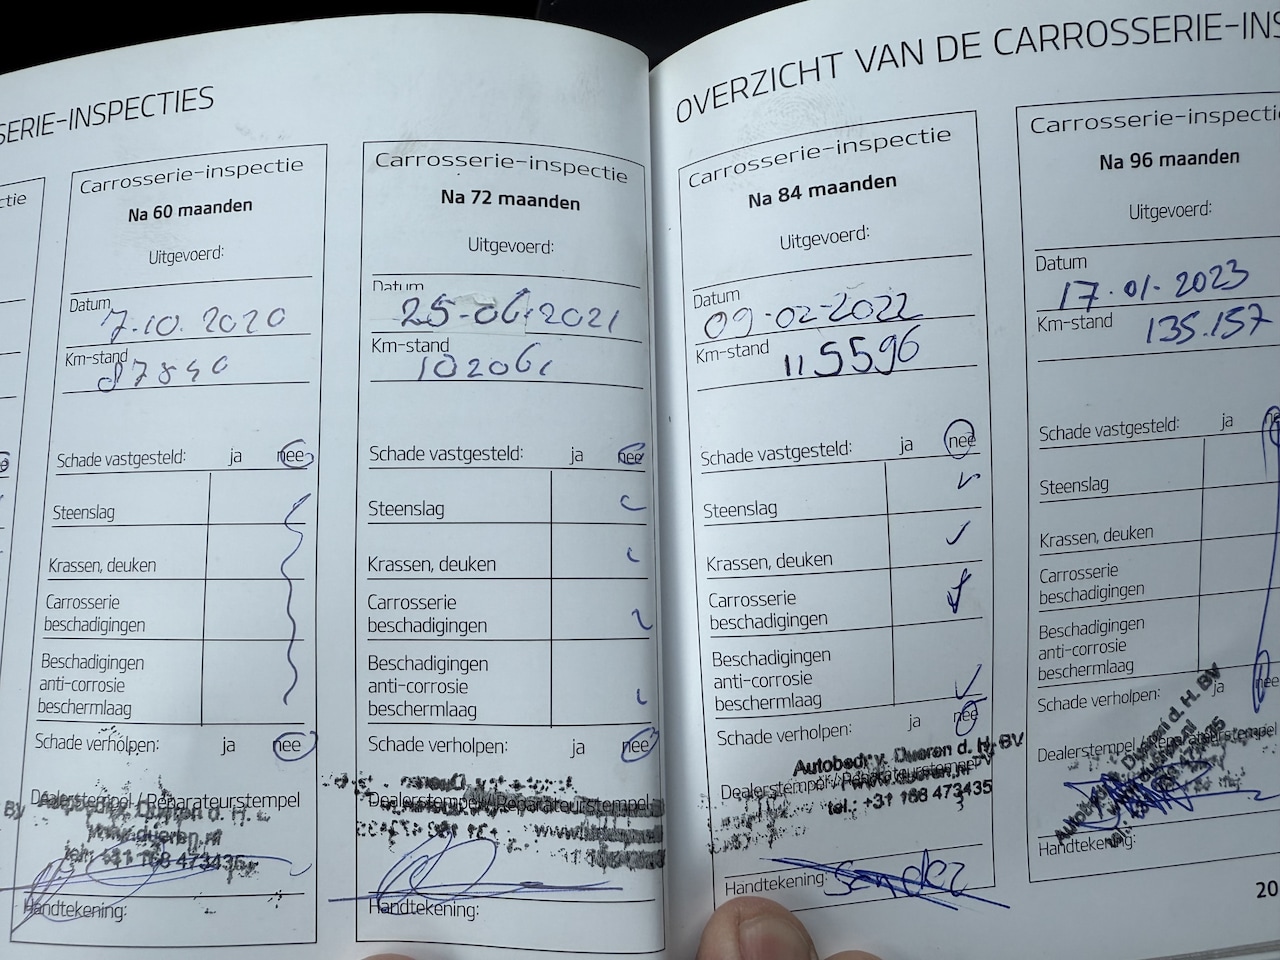 SERIE-INSPECTIES
ctie
Carrosserie-inspectie
Na 60 maanden
Uitgevoerd:
Datum
7.10.2020
Km-stand
87840
Schade vastgesteld: ja nee
Steenslag
Krassen, deuken
Carrosserie
beschadigingen
Beschadigingen
anti-corrosie
beschermlaag
Schade verholpen: ja nee
Dealerstempel / Reparateurstempel
www.dueren.nl
tel.: +31 168 473435
Handtekening:
Carrosserie-inspectie
Na 72 maanden
Uitgevoerd:
Datum
25-06-2021
Km-stand
102061
Schade vastgesteld: ja nee
Steenslag
Krassen, deuken
Carrosserie
beschadigingen
Beschadigingen
anti-corrosie
beschermlaag
Schade verholpen: ja nee
Dealerstempel / Reparateurstempel
Handtekening:
OVERZICHT VAN DE CARROSSERIE-INS
Carrosserie-inspectie
Na 84 maanden
Uitgevoerd:
Datum
09-02-2022
Km-stand
115596
Schade vastgesteld: ja nee
Steenslag
Krassen, deuken
Carrosserie
beschadigingen
Beschadigingen
anti-corrosie
beschermlaag
Schade verholpen: ja nee
Autobedr. v. Dueren d. H. BV
Dealerstempel / Reparateurstempel
tel.: +31 168 473435
Handtekening: Sander
Carrosserie-inspectie
Na 96 maanden
Uitgevoerd:
Datum
17-01-2023
Km-stand
135.157
Schade vastgesteld: ja
Steenslag
Krassen, deuken
Carrosserie
beschadigingen
Beschadigingen
anti-corrosie
beschermlaag
Schade verholpen: ja nee
Dealerstempel / Reparateurstempel
Handtekening:
20